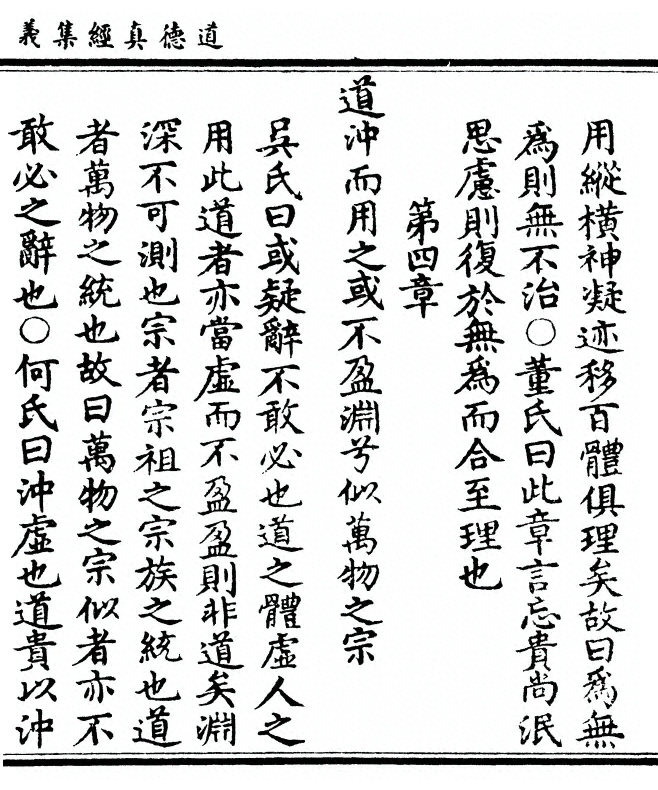 道德真經集義
用縱橫神凝迹移百體俱理矣故曰爲無
爲則無不治○董氏曰此章言忘貴尚泯
思慮則復於無爲而合至理也
第四章
道沖而用之或不盈淵兮似萬物之宗
吳氏曰或疑辭不敢必也道之體虛人之
用此道者亦當虛而不盈盈則非道矣淵
深不可測也宗者宗祖之宗族之統也道
者萬物之統也故曰萬物之宗似者亦不
敢必之辭也○何氏曰沖虛也道貴以沖